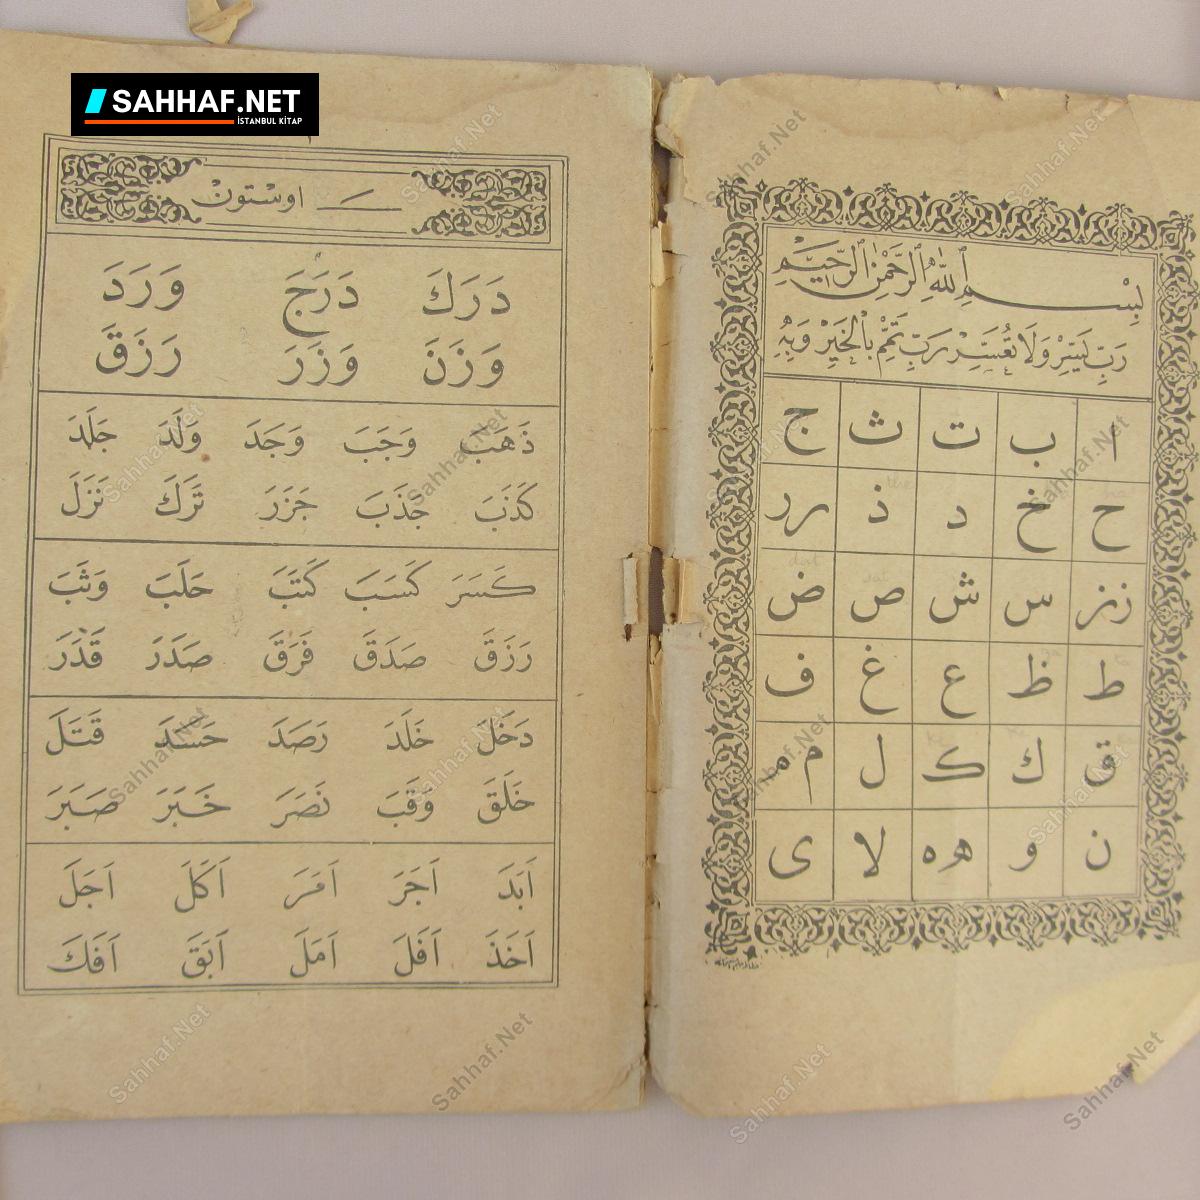 SAHHAF.NET
İSTANBUL KİTAP
بِسْمِ اللّٰهِ الرَّحْمٰنِ الرَّحِيمِ
رَبِّ يَسِّرْ وَلَا تُعَسِّرْ رَبِّ تَمِّمْ بِالْخَيْرِ وَبِهِ
ا ب ت ث ج
ح خ د ذ رر
زز س ش ص ض
ط ظ ع غ ف
ق ك ک ل م م
ن و هه لا ى
اوستون
دَرَكَ دَرَجَ وَرَدَ
وَزَنَ وَزَرَ رَزَقَ
ذَهَبَ وَجَبَ وَجَدَ وَلَدَ جَلَدَ
كَذَبَ جَذَبَ جَزَرَ تَرَكَ نَزَلَ
كَسَرَ كَسَبَ كَتَبَ حَلَبَ وَثَبَ
رَزَقَ صَدَقَ فَرَقَ صَدَرَ قَدَرَ
دَخَلَ خَلَدَ رَصَدَ حَسَدَ قَتَلَ
خَلَقَ وَقَبَ نَصَرَ خَبَرَ صَبَرَ
اَبَدَ اَجَرَ اَمَرَ اَكَلَ اَجَلَ
اَخَذَ اَفَلَ اَمَلَ اَبَقَ اَفَكَ